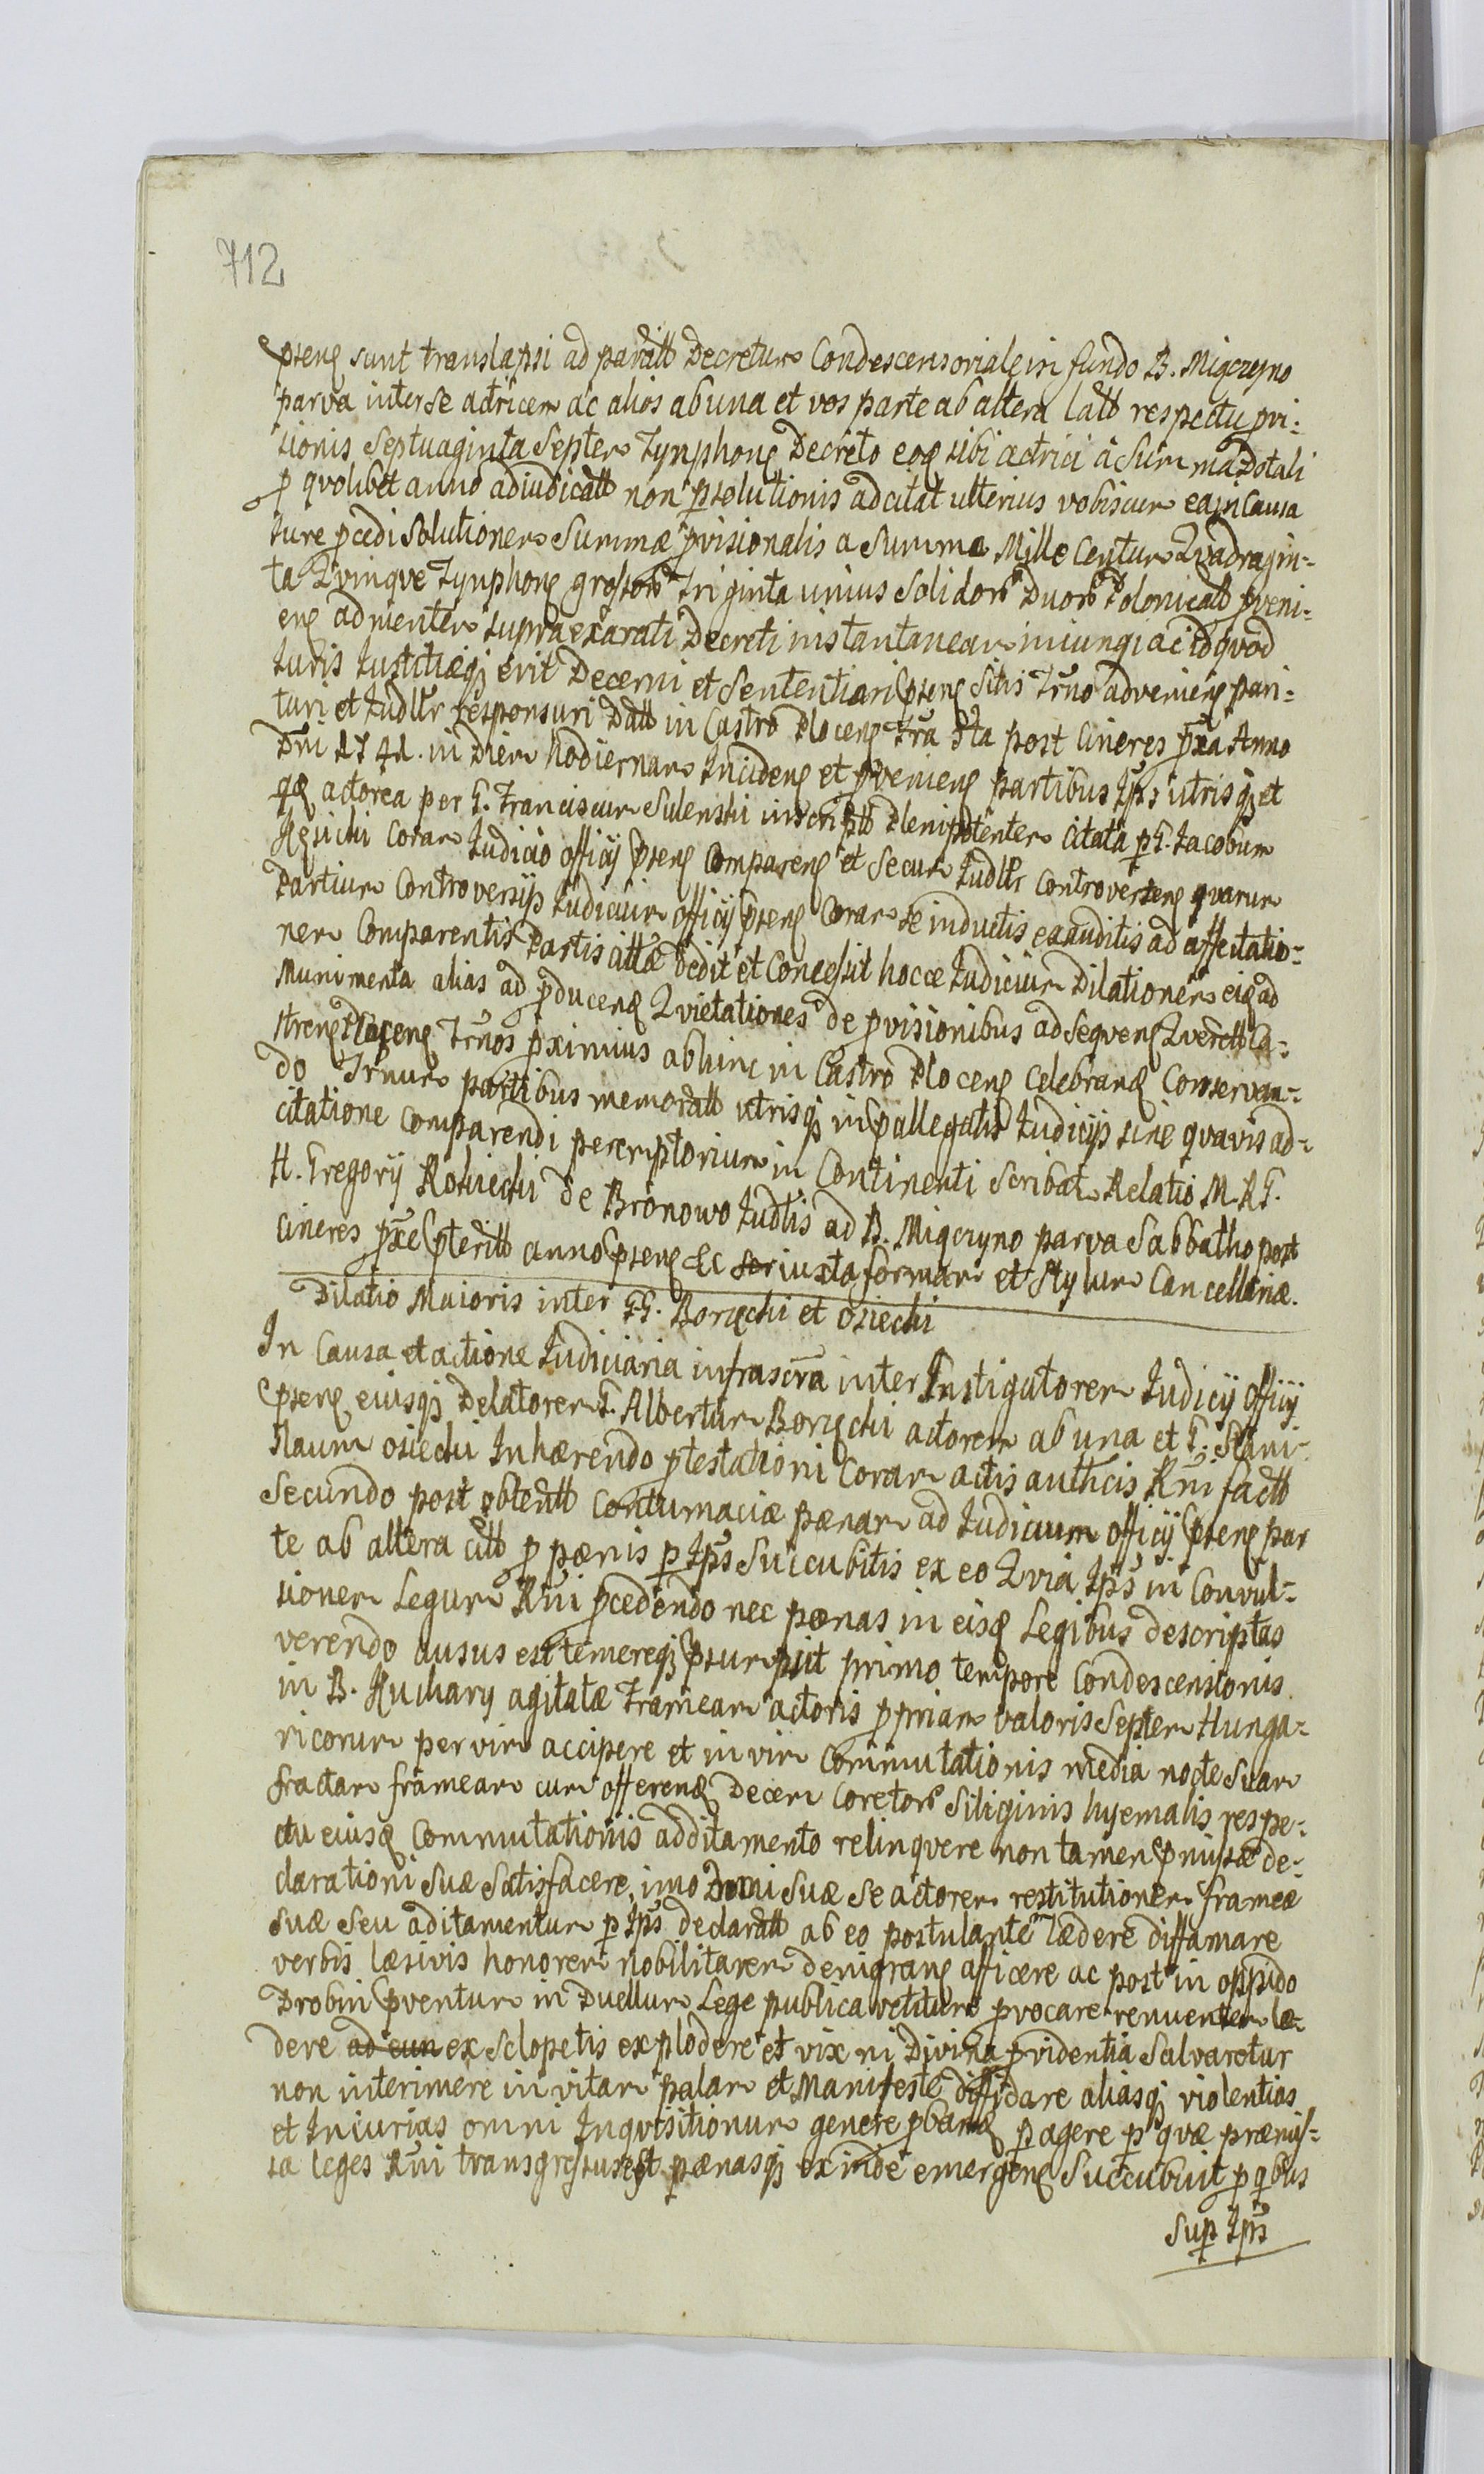 712
pseñ sunt translapsi ad paratt Decretum Condescensoriale in fundo B. Migczyno
parva inter se actricem ac alios ab una et vos parte ab altera latt respectu pvi-
sionis Septuaginta Septem Tynphoñ Decreto eoq sibi actrici a Summa Dotali
p qvolibet anno adiudicatt non psolutionis adcitat ulterius vobiscum ea in Causa
Jure pcedi Solutionem Summæ pvisionalis a Summa Mille Centum Qvadragin-
ta Qvinqve Tynphoñ grossor Triginta unius Solidor Duor Polonicatt pveni-
eñ ad mentem supra exarati Decreti instantaneam iniungi ac id qvod
Juris Justitiæq erit Decerni et Sententiari pseñ Sitis Trno advenieñ pari-
turi et Judltr responsuri Datt in Castro Ploceñ Fra 5ta post Cineres pxa Anno
Dni 1741. in Diem Hodiernam Incideñ et pvenieñ partibus Ipis utrisq et
qđ actorea per G. Franciscum Sulenski inscriptt Plenipotentem Citata p G. Jacobum
Kęsicki Coram Judicio Officij pseñ Compareñ et Secum Judltr Controverteñ qvarum
Partium Controversijs Judicium Officij pseñ Coram se inductis exauditis ad affectatio-
nem Comparentis Partis cittæ Dedit et Concessit hocce Judicium Dilationem eiđ ad
Munimenta alias ad pducenđ Qvietationes de pvisionibus ad Seqveñ Qverctt Ca-
streñ Ploceñ Trnos pximius abhinc in Castro Ploceñ Celebranđ Conservan-
do Trnum partibus memoratt utrisq in pallegatis Judicijs sine qvavis ad-
citatione Comparendi peremptorium in Continenti Scribat Relatio M. R G.
H. Gregorij Rościecki de Bronowo Judlis ad B. Migczyno parva Sabbatho post
Cineres pxe pteritt anno pseñ &c iuxta formam et Stylum Cancellariæ.
Dilatio Maioris inter GG. Boryęcki et Osiecki
In Causa et actione Judiciaria infrascra inter Instigatorem Judicij Officij
pseñ eiusq Delatorem G. Albertum Boryęcki actorem ab una et G. Stani-
slaum Osiecki Inhærendo ptestationi Coram actis authcis Rni factt
Secundo post obtentt Contumaciæ pænam ad Judicium Officij pseñ par
te ab altera citt p pœnis p Ips Succubitis ex eo Qvia Ips in Convul-
sionem Legum Rni pcedendo nec pœnas in eisđ Legibus descriptas
verendo ausus est temereq psumpsit primo tempore Condescensionis
in B. Kuchary agitatæ Frameam actoris ppriam valoris Septem Hunga-
ricorum per vim accipere et in vim Commutationis media nocte Suam
fractam frameam cum offerenđ Decem Coretor Siliginis hyemalis respe-
ctu eiusđ Commutationis additamento relinqvere non tamen pmissæ de-
clarationi Suæ Satisfacere, imo Domi Suæ Se actorem restitutionem frameæ
suæ Seu aditamentum p Ips declaratt ab eo postulante lædere diffamare
verbis læsivis honorem nobilitarem denigrañ afficere ac post in oppido
Drobin pventum in Duellum Lege publica vetitum provocare renuentem læ-
dere ad eum ex Sclopetis explodere et vix ni Divina pvidentia Salvaretur
non interimere in vitam palam et Manifeste diffidare aliasq violentias
et Iniurias omni Inqvisitionum genere pbanđ p agere p qvæ præmis-
sa leges Rni transgressus est pænasq ex inde emergeñ Succubuit p qbus
Sup Ips